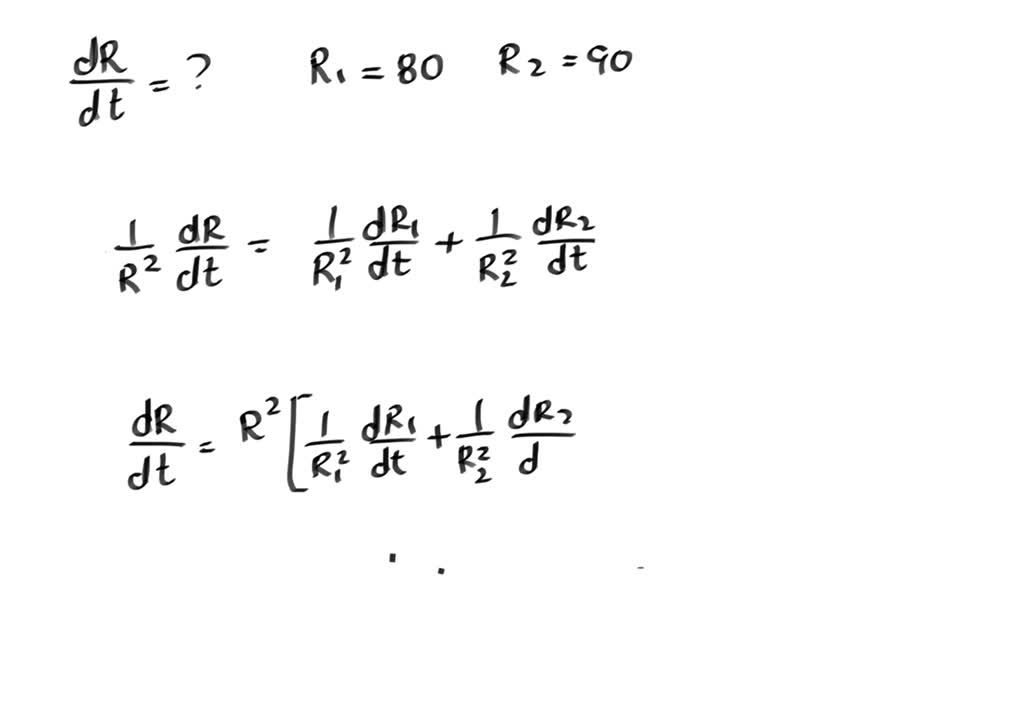 dR/dt = ? R₁ = 80 R₂ = 90
1/R² dR/dt = 1/R₁² dR₁/dt + 1/R₂² dR₂/dt
dR/dt = R² [ 1/R₁² dR₁/dt + 1/R₂² dR₂/d